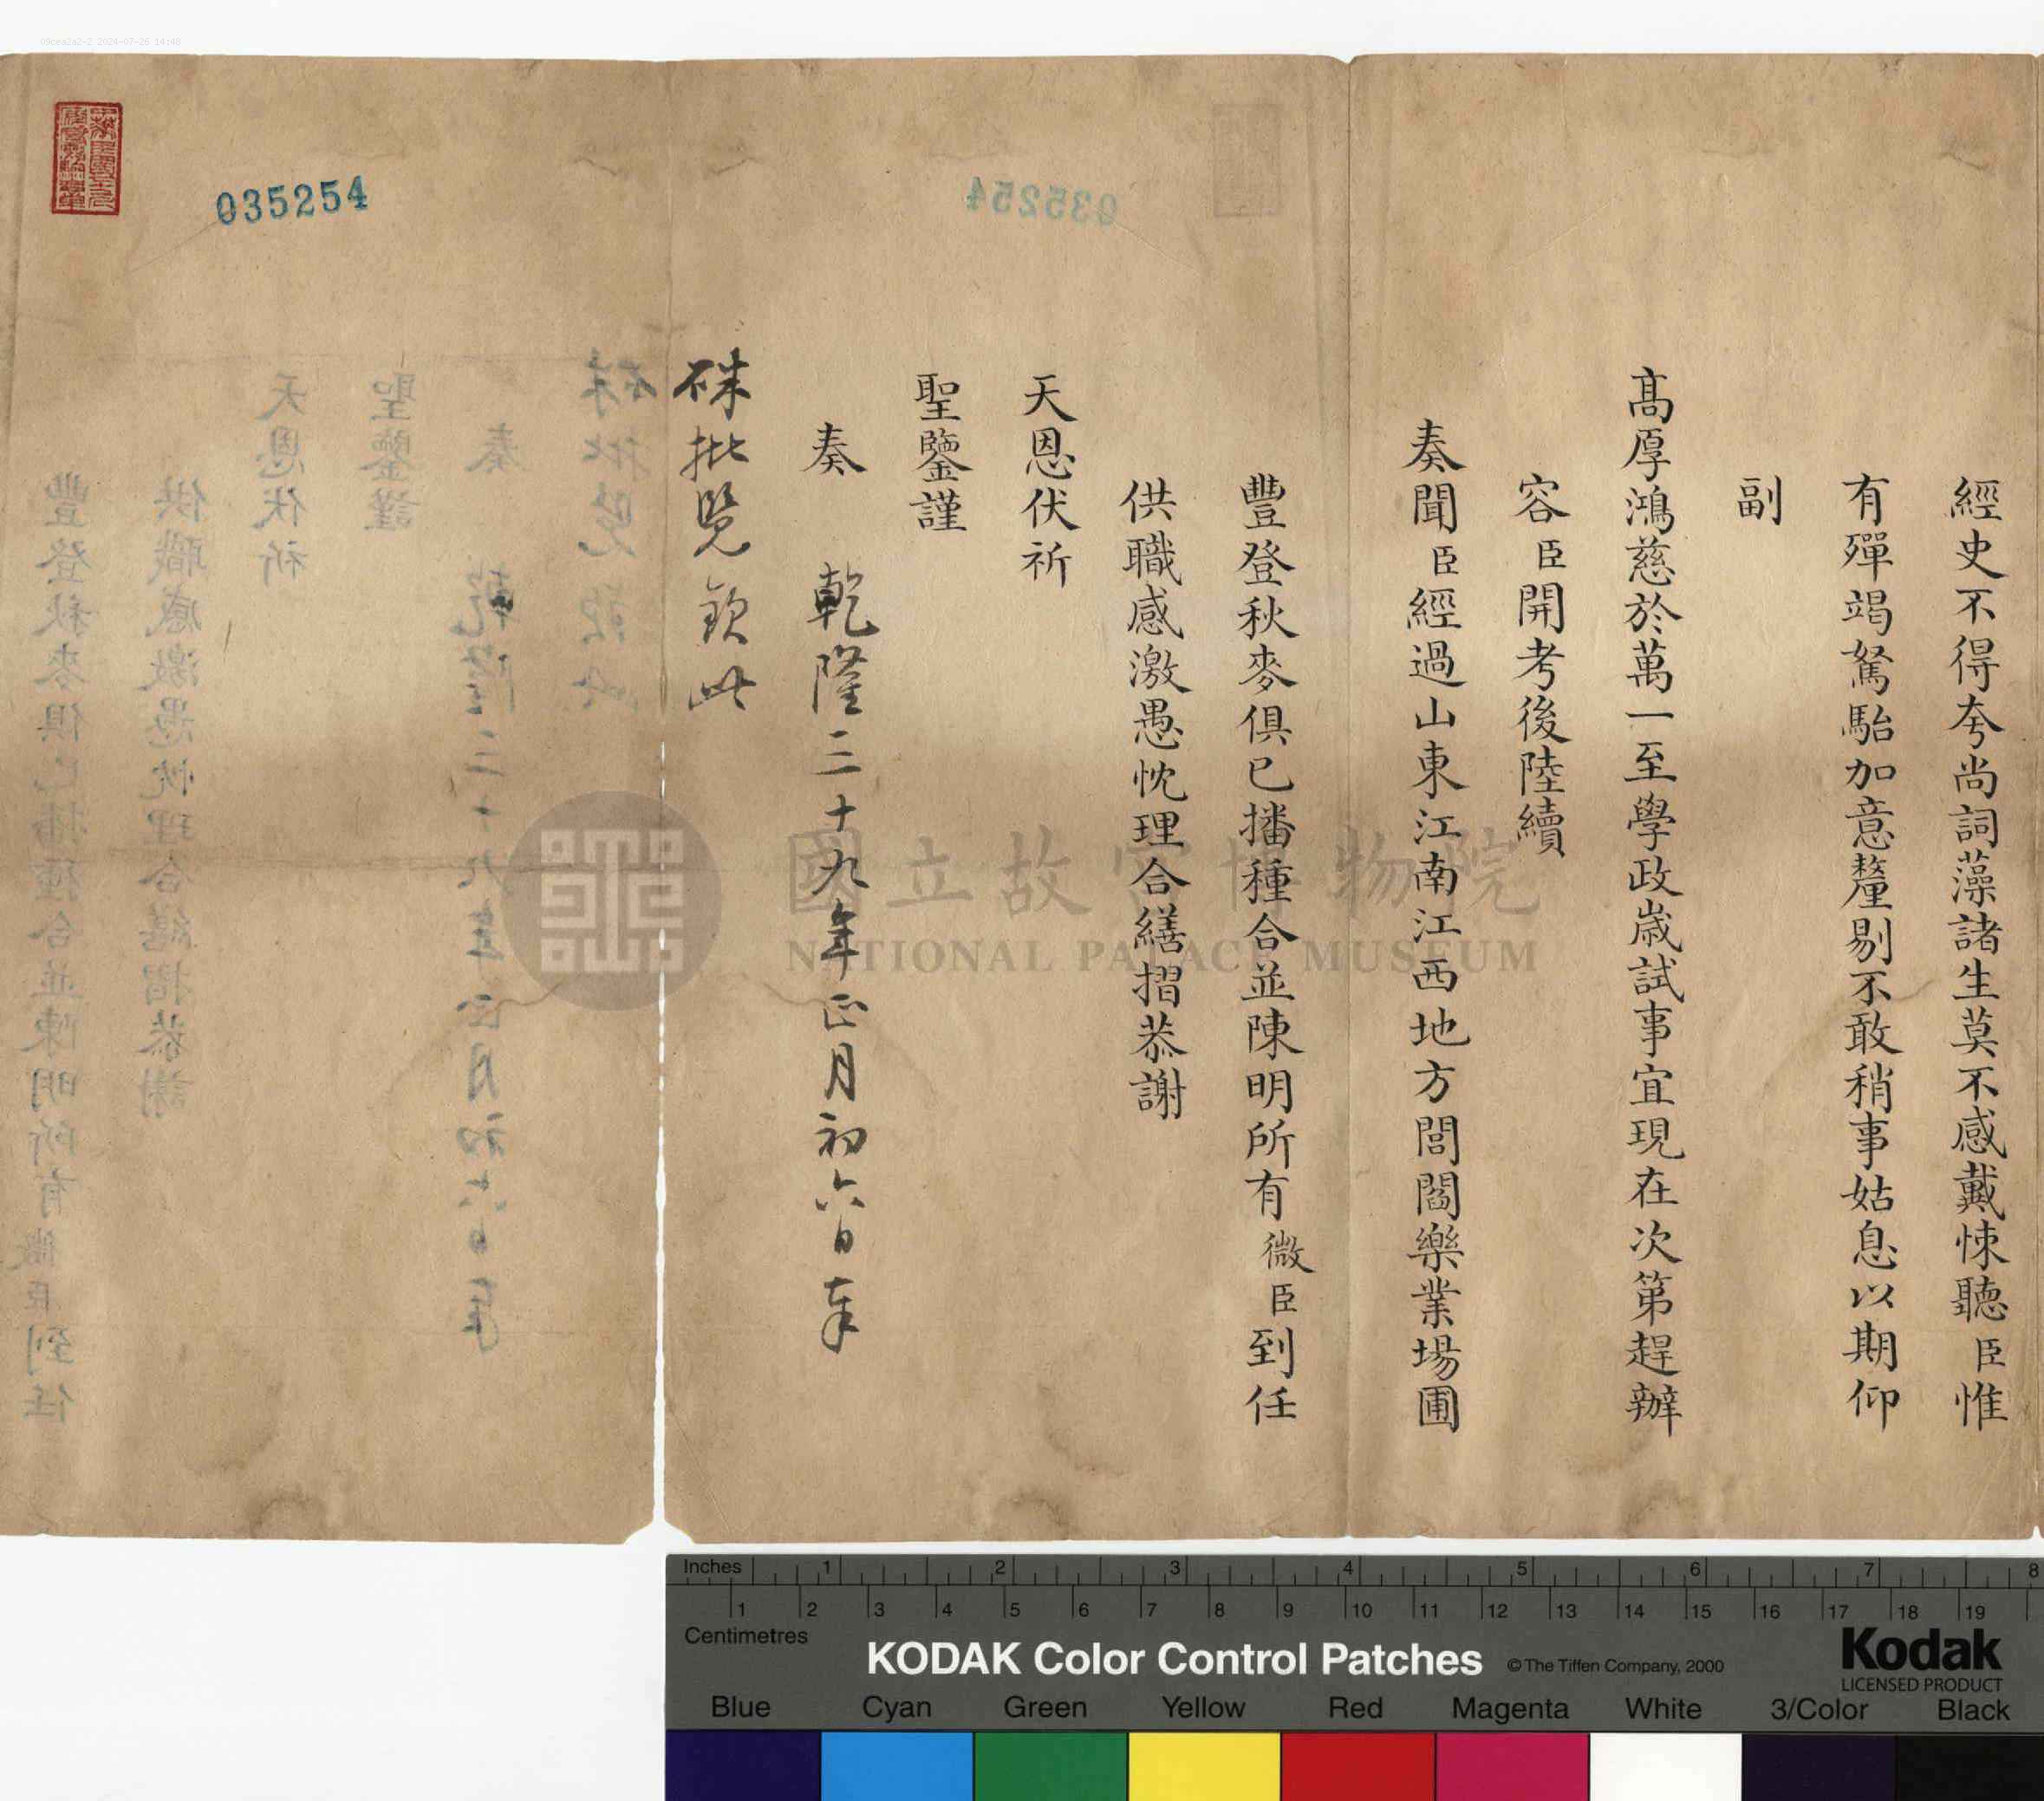 經史不得夸尚詞藻諸生莫不感戴悚聽臣惟
有殫竭駑駘加意釐剔不敢稍事姑息以期仰
副
高厚鴻慈於萬一至學政歲試事宜現在次第趕辦
容臣開考後陸續
奏聞臣經過山東江南江西地方閭閻樂業場圃
豐登秋麥俱已播種合並陳明所有微臣到任
供職感激愚忱理合繕摺恭謝
天恩伏祈
聖鑒謹
奏
乾隆三十九年正月初六日奉
硃批覽欽此
035254
國立故宮博物院
NATIONAL PALACE MUSEUM
09cea2a2-2 2024-07-26 14:48
Inches 1 2 3 4 5 6 7 8
1 2 3 4 5 6 7 8 9 10 11 12 13 14 15 16 17 18 19
Centimetres
KODAK Color Control Patches © The Tiffen Company, 2000
Kodak
LICENSED PRODUCT
Blue Cyan Green Yellow Red Magenta White 3/Color Black